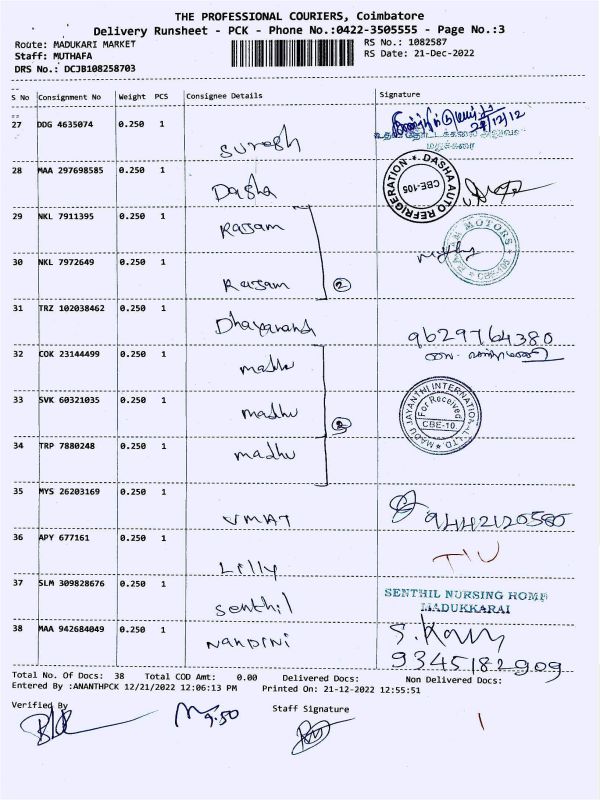 THE PROFESSIONAL COURIERS, Coimbatore
Delivery Runsheet - PCK - Phone No.:0422-3505555 - Page No.:3
Route: MADUKARI MARKET
RS No.: 1082587
Staff: MUTHAFA
RS Date: 21-Dec-2022
DRS No.: DCJB108258703
S No Consignment No Weight PCS Consignee Details Signature
27 DDG 4635074 0.250 1 Suresh
மதுக்கரை
28 MAA 297698585 0.250 1 Dasha
DASHA AUTO REFRIGERATION
CBE-105
29 NKL 7911395 0.250 1 Rajam
MOTORS
30 NKL 7972649 0.250 1 Rajam ②
31 TRZ 102038462 0.250 1 Dhayanand 9629764380
32 COK 23144499 0.250 1 madhu
33 SVK 60321035 0.250 1 madhu
MADU JAYANTHI INTERNATIONAL LTD
For Received
CBE-10.
34 TRP 7880248 0.250 1 madhu
35 MYS 26203169 0.250 1 UMAT 9442120580
36 APY 677161 0.250 1 Lilly
37 SLM 309828676 0.250 1 Senthil SENTHIL NURSING HOME
MADUKKARAI
38 MAA 942684049 0.250 1 Nandini
9345182909
Total No. Of Docs: 38 Total COD Amt: 0.00 Delivered Docs: Non Delivered Docs:
Entered By :ANANTHPCK 12/21/2022 12:06:13 PM Printed On: 21-12-2022 12:55:51
Verified By 9.50 Staff Signature